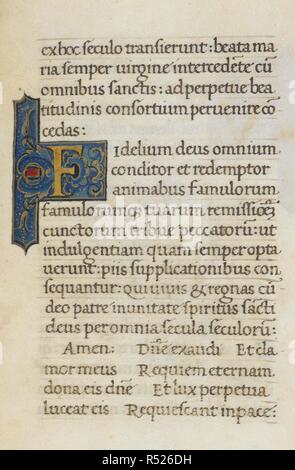 ex hoc seculo transierunt: beata ma
ria semper virgine intercedēte cū
omnibus sanctis: ad perpetue bea
titudinis consortium pervenire cō
cedas:
Fidelium deus omnium
conditor et redemptor
animabus famulorum
famularumq; tuarum remissiōēʒ
cunctorum tribue peccatorū: ut
indulgentiam quam semper opta
verunt: piis supplicationibus con
sequantur: qui vivis & regnas cū
deo patre in unitate spiritus sācti
deus per omnia secula seculorū:
Amen: Dn̄e exaudi Et cla
mor meus Requiem eternam.
dona eis dn̄e Et lux perpetua
luceat eis Requiescant in pace:
alamy
www.alamy.com - R526DH